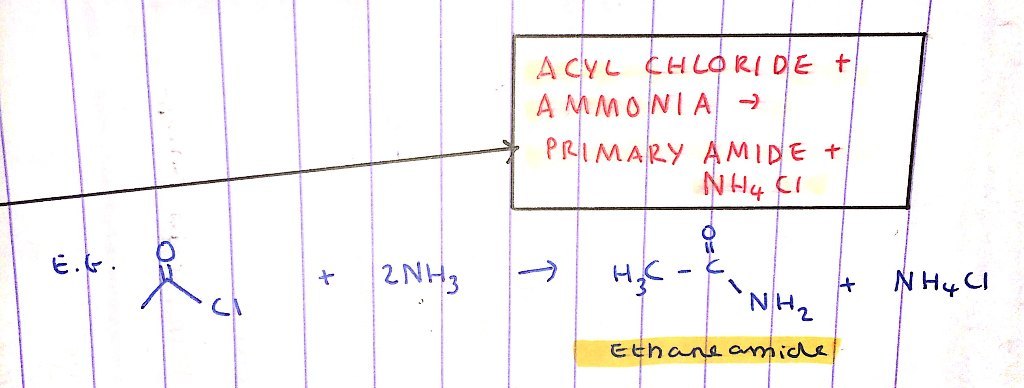 ACYL CHLORIDE +
AMMONIA →
PRIMARY AMIDE +
NH4 Cl
E.G. O Cl + 2NH3 → H3C - C O NH2 + NH4Cl
Ethaneamide